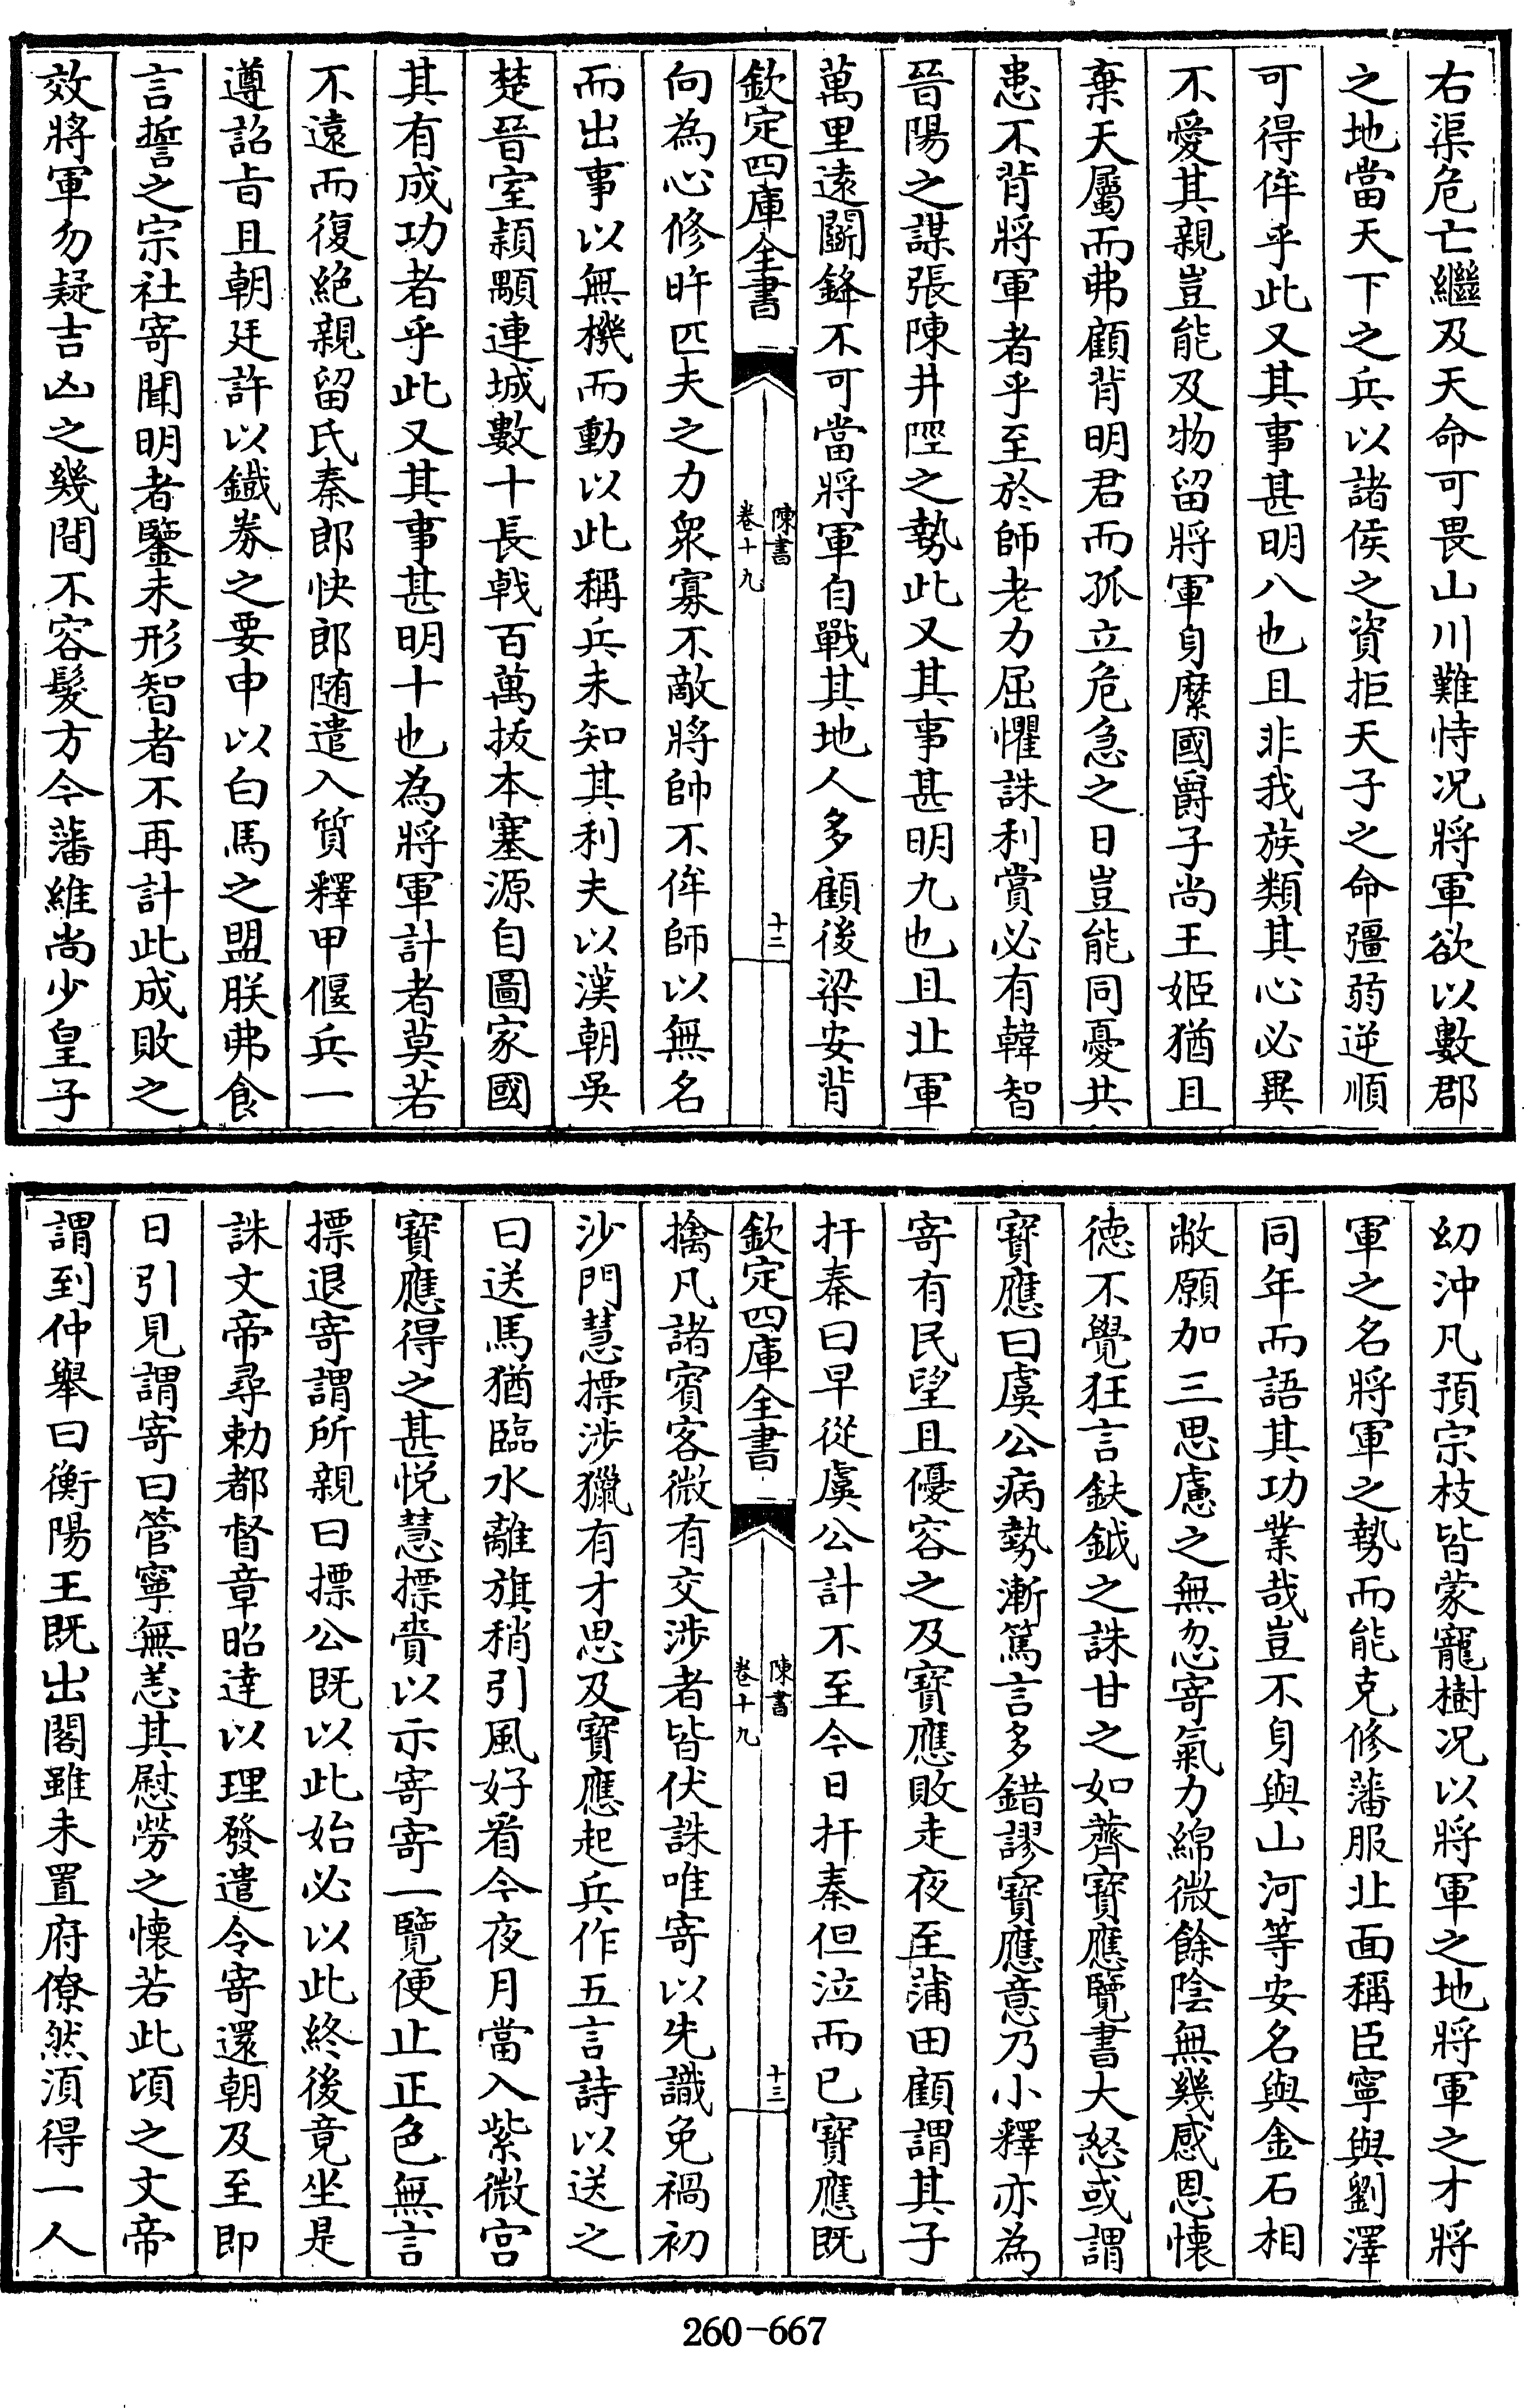 右渠危亡繼及天命可畏山川難恃况將軍欲以數郡
之地當天下之兵以諸侯之資拒天子之命彊弱逆順
可得侔乎此又其事甚明八也且非我族類其心必異
不愛其親豈能及物留將軍身縻國爵子尚王姬猶且
棄天屬而弗顧背明君而孤立危急之日豈能同憂共
患不背將軍者乎至於師老力屈懼誅利賞必有韓智
晉陽之謀張陳井陘之勢此又其事甚明九也且北軍
萬里遠鬭鋒不可當將軍自戰其地人多顧後梁安背
欽定四庫全書
陳書
卷十九
十二
向為心修旿匹夫之力衆寡不敵將帥不侔師以無名
而出事以無機而動以此稱兵未知其利夫以漢朝吳
楚晉室穎顒連城數十長戟百萬拔本塞源自圖家國
其有成功者乎此又其事甚明十也為將軍計者莫若
不遠而復絶親留氏秦郎快郎隨遣入質釋甲偃兵一
遵詔旨且朝廷許以鐵券之要申以白馬之盟朕弗食
言誓之宗社寄聞明者鑒未形智者不再計此成敗之
效將軍勿疑吉凶之幾間不容髮方今藩維尚少皇子
幼沖凡預宗枝皆蒙寵樹况以將軍之地將軍之才將
軍之名將軍之勢而能克修藩服北面稱臣寧與劉澤
同年而語其功業哉豈不身與山河等安名與金石相
敝願加三思慮之無忽寄氣力綿微餘陰無幾感恩懷
德不覺狂言鈇鉞之誅甘之如薺寶應覽書大怒或謂
寶應曰虞公病勢漸篤言多錯謬寶應意乃小釋亦為
寄有民望且優容之及寶應敗走夜至蒲田顧謂其子
扞秦曰早從虞公計不至今日扞秦但泣而已寶應既
欽定四庫全書
陳書
卷十九
十三
擒凡諸賓客微有交涉者皆伏誅唯寄以先識免禍初
沙門慧摽涉獵有才思及寶應起兵作五言詩以送之
曰送馬猶臨水離旗稍引風好看今夜月當入紫微宮
寶應得之甚悅慧摽賫以示寄寄一覽便止正色無言
摽退寄謂所親曰摽公既以此始必以此終後竟坐是
誅文帝尋勅都督章昭達以理發遣令寄還朝及至即
日引見謂寄曰管寧無恙其慰勞之懷若此頃之文帝
謂到仲舉曰衡陽王既出閣雖未置府僚然須得一人
260-667